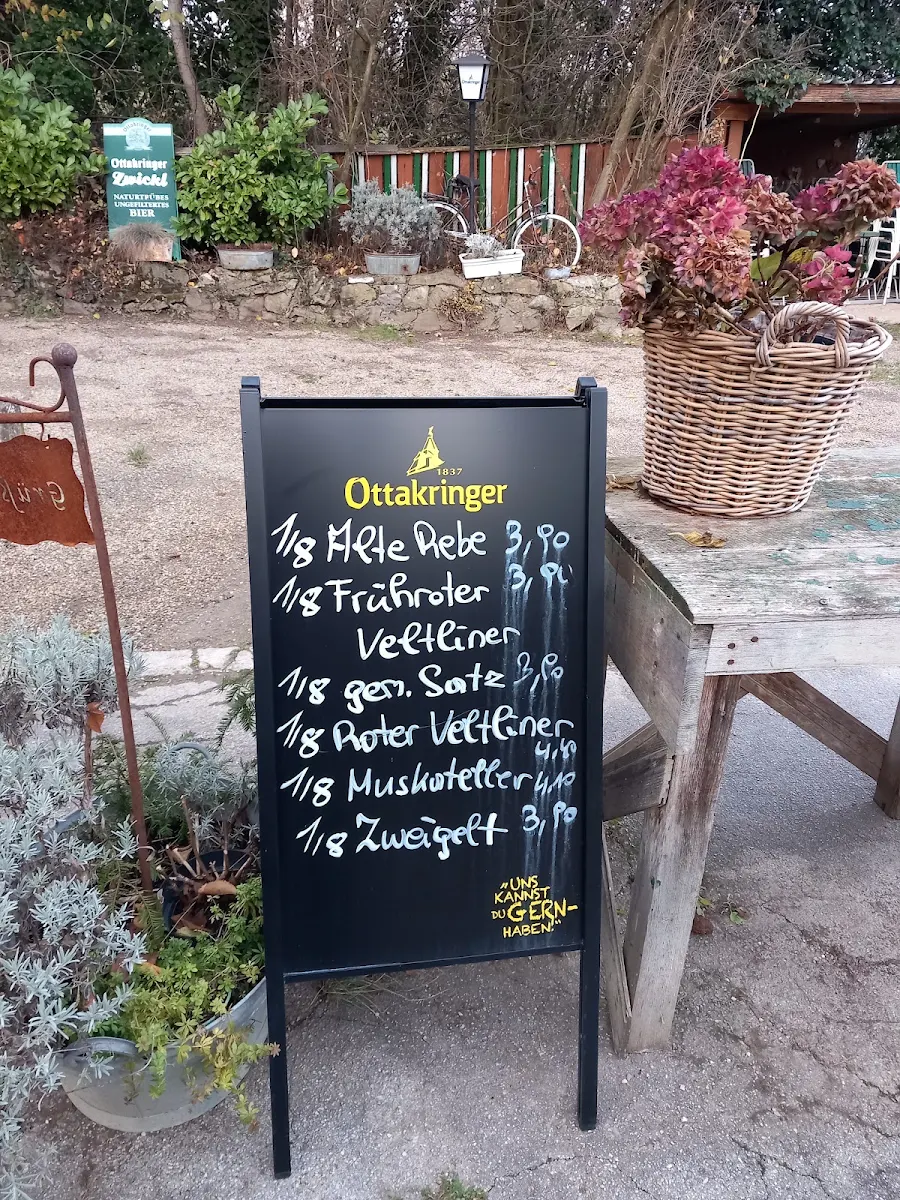 Ottakringer
Ottakringer
Zwickl
NATURTRÜBES
UNGEFILTERTES
BIER
Grüß
1837
Ottakringer
1/8 Alte Rebe 3,90
1/8 Frühroter 3,90
Veltliner
1/8 gem. Satz 3,90
1/8 Roter Veltliner
4,40
1/8 Muskateller 4,10
1/8 Zweigelt 3,90
"UNS
KANNST
DU GERN-
HABEN!"